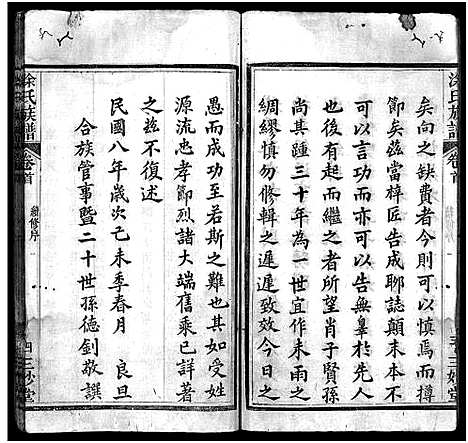 涂氏族譜
卷首
續修序
三妙堂
矣向之缺費者今則可以慎焉而樽
節矣茲當梓匠告成聊誌顛末本不
可以言功而以告無辜於先人
也後有起而繼之者所望肖子賢孫
尚其踵三十年為一世宜未雨之
綢繆慎勿修輯之遲遲致效今日之
愚而成功至若斯之難也其受姓
源流忠孝節烈諸大端舊乘已詳著
之茲不復述
民國八年歲次己未季春月 良旦
合族管事暨二十世孫德釗敬撰
涂氏族譜
卷首
續修序
四
三妙堂